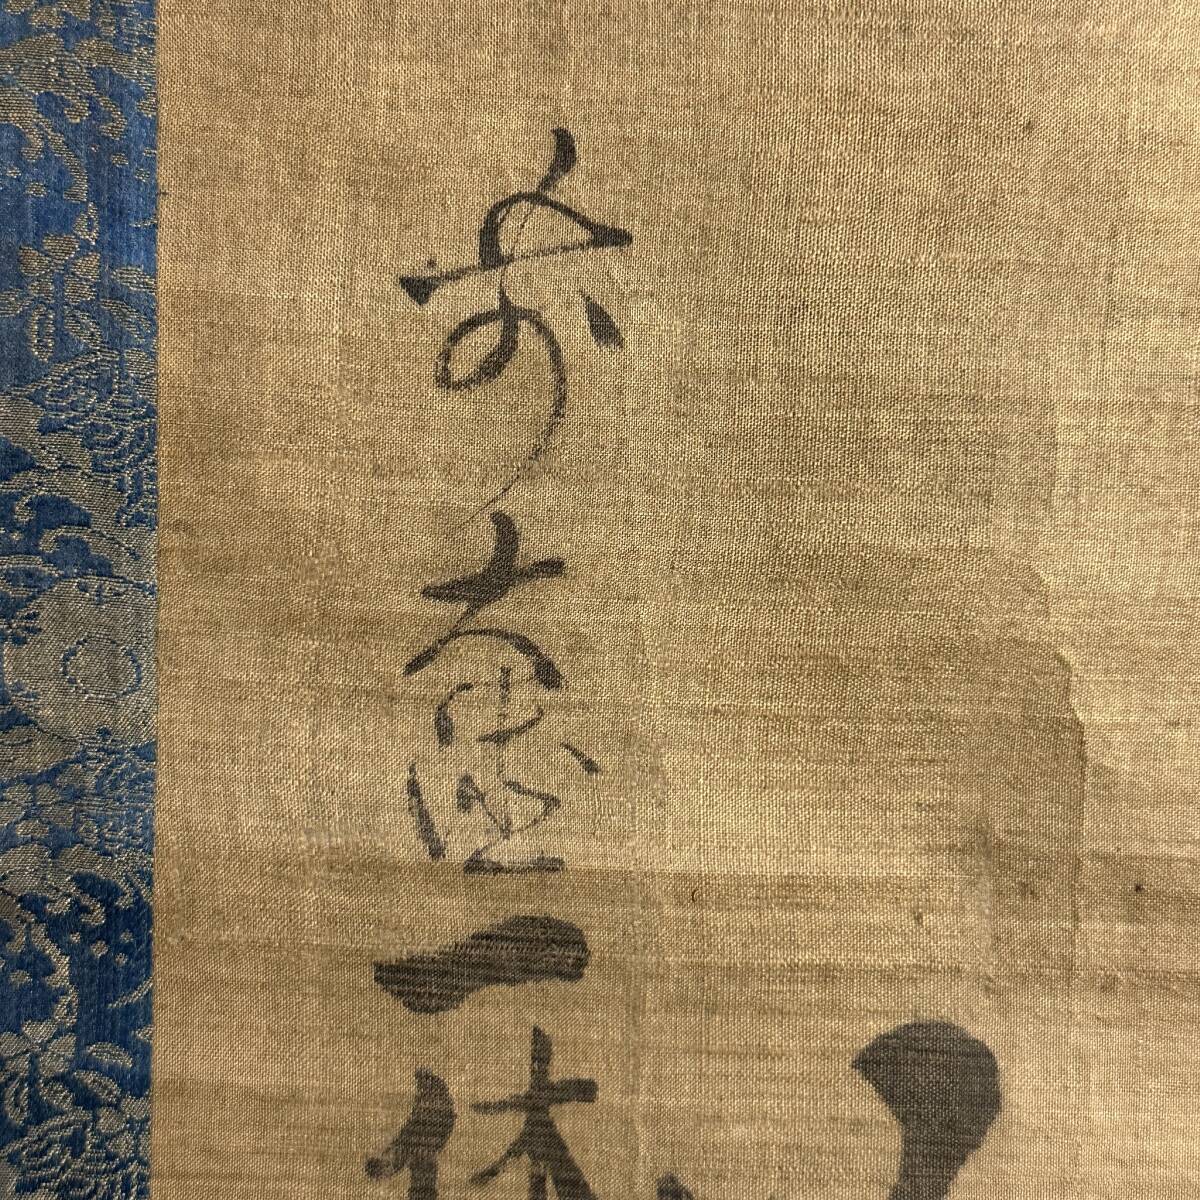 前大德一休